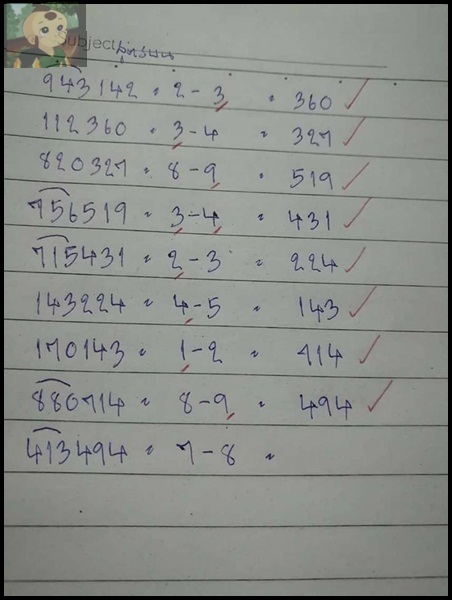 Subject
943142 = 2-3 = 360
112360 = 3-4 = 327
820327 = 8-9 = 519
756519 = 3-4 = 431
715431 = 2-3 = 224
143224 = 4-5 = 143
170143 = 1-2 = 714
880714 = 8-9 = 494
413494 = 7-8 =